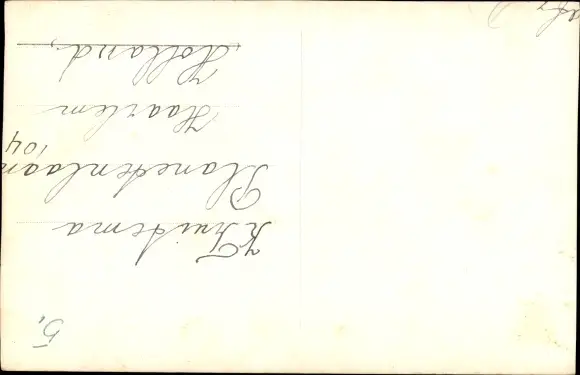 K Fruitema
Planetenlaan
104
Haarlem
Holland,
5,